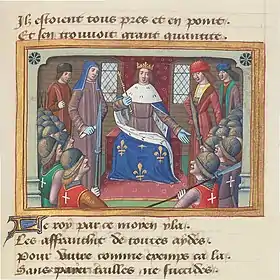 Ilz estoient tous pres et en point.
Et sen trouvoit grant quantite.
Le roy par ce moyen yla
Les affranchit de toutes aydes.
Pour vivre comme exemps ca la
Sans payer tailles ne succides.